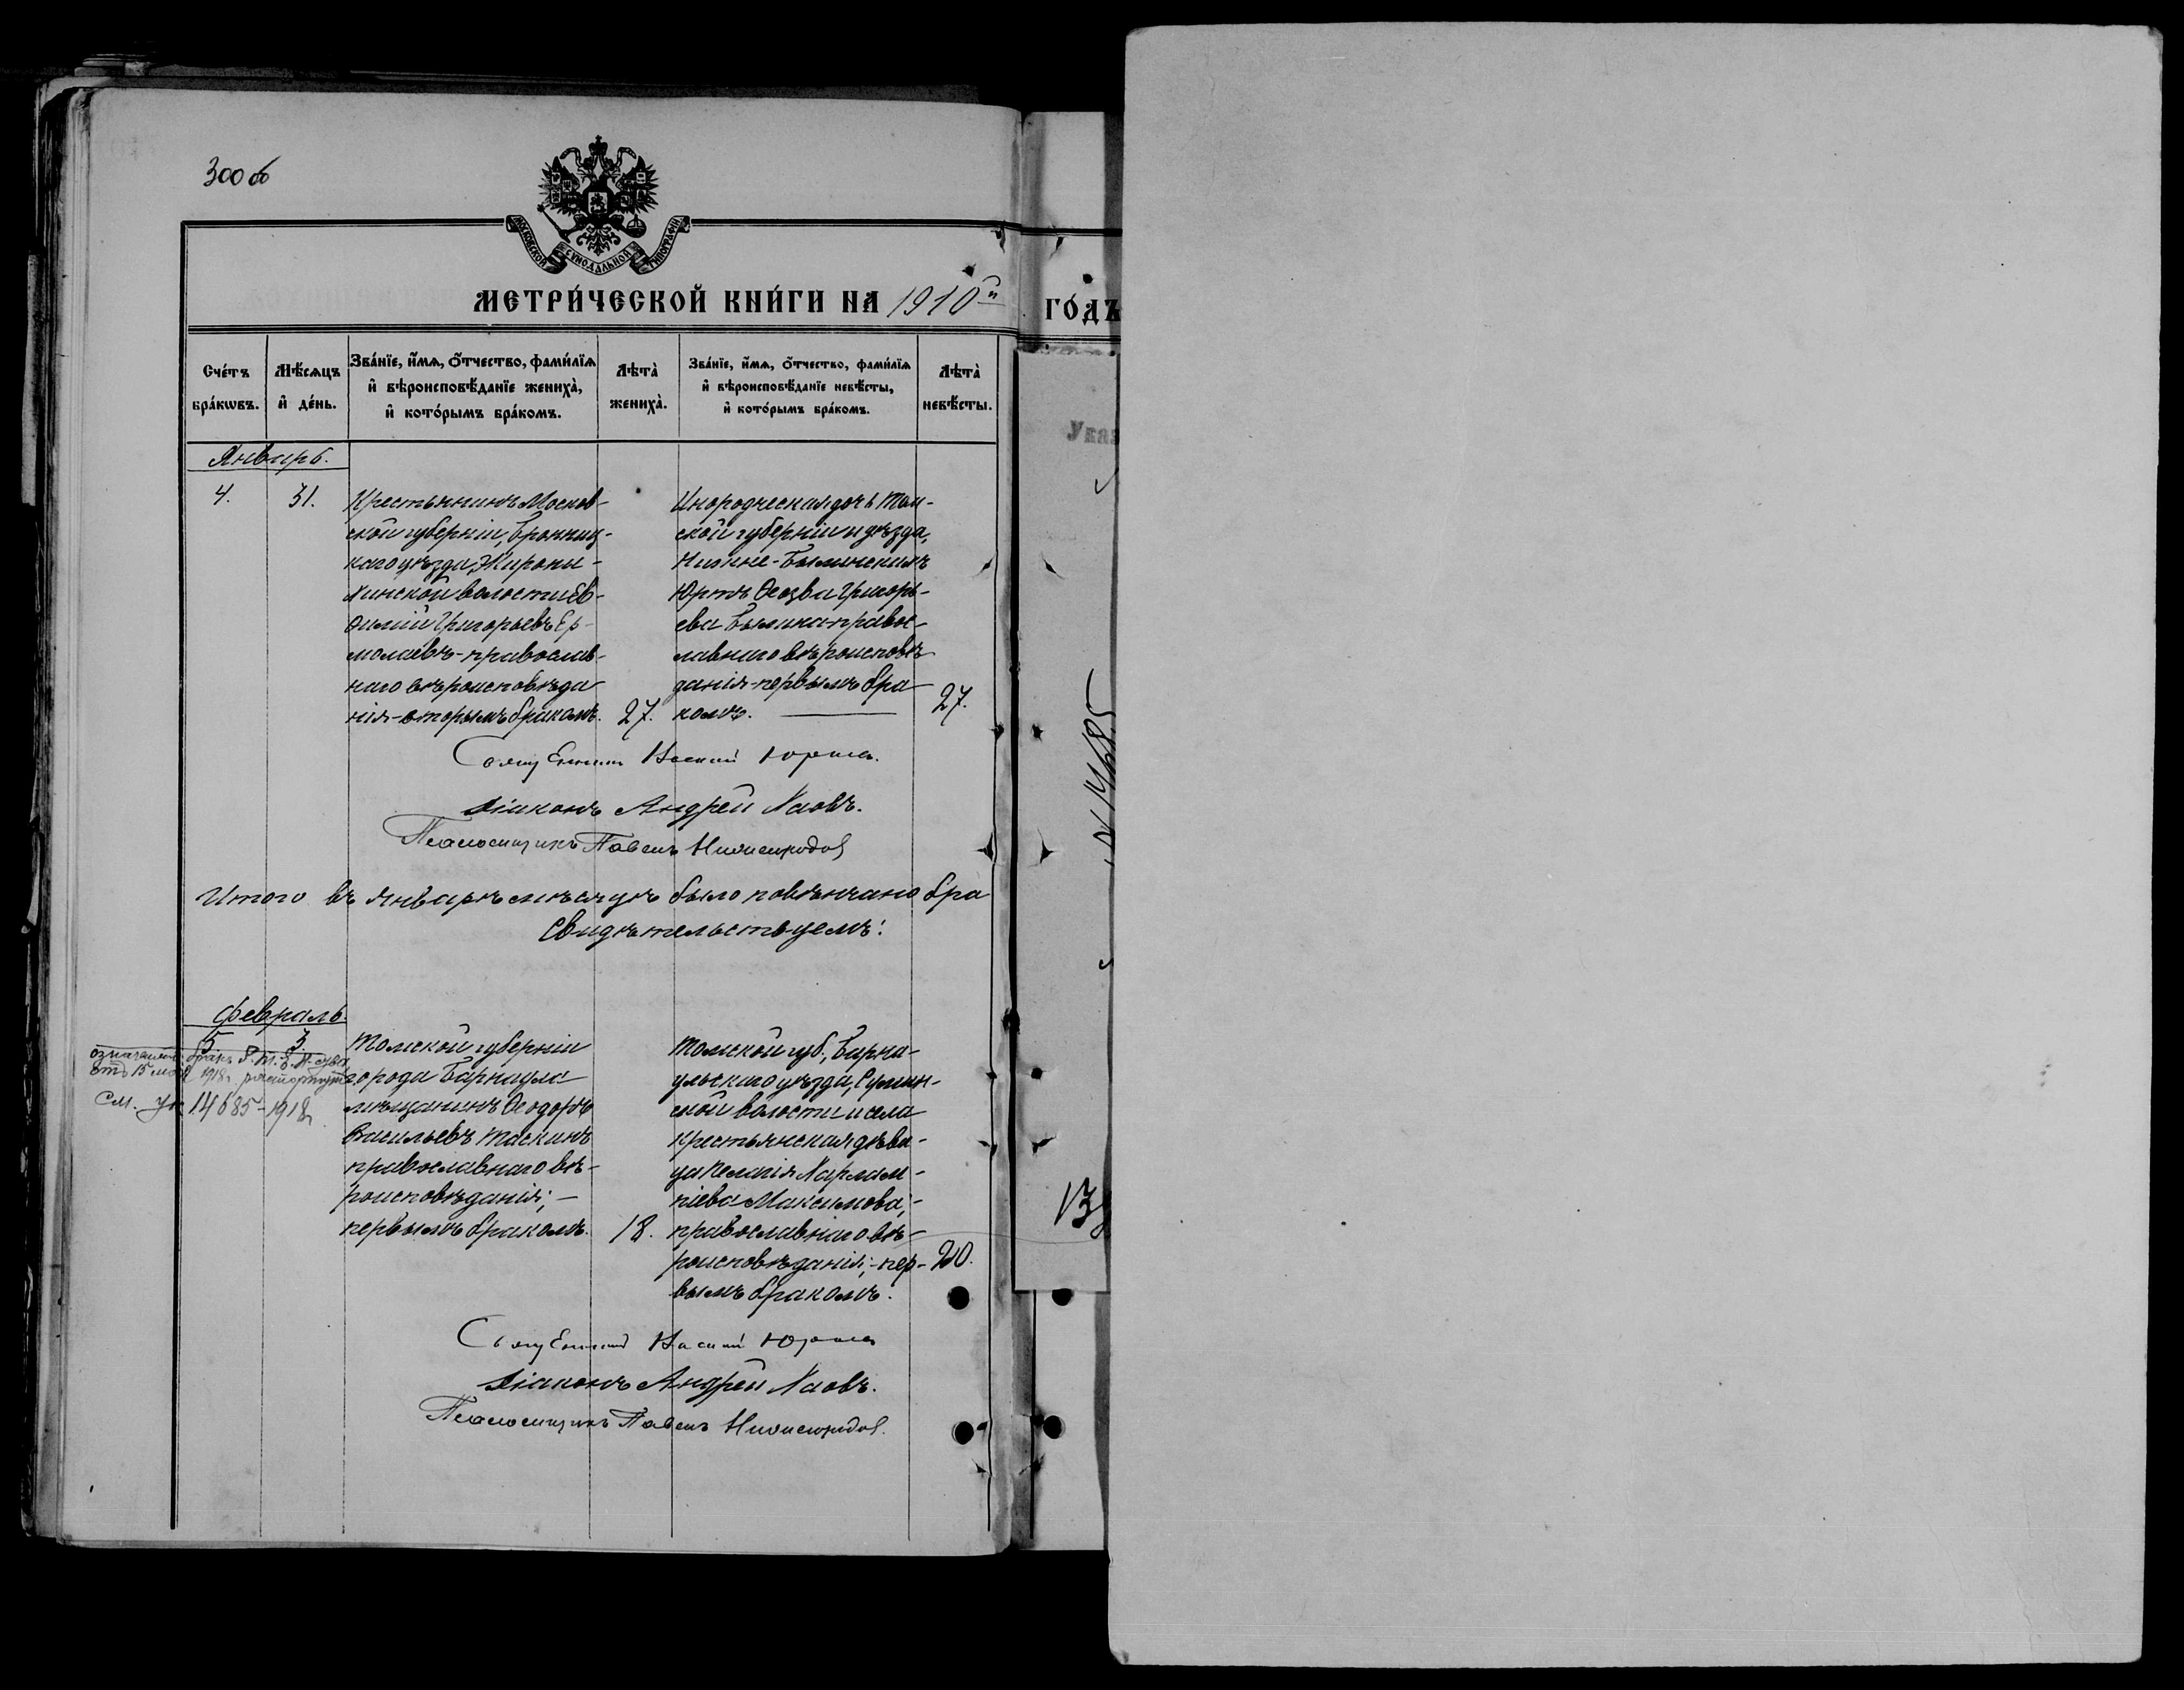 300 об
МОСКОВСКОЙ СУНОДАЛЬНОЙ ТИПОГРАФІИ
МЕТРИ́ЧЕСКОЙ КНИ́ГИ НА 1910й ГО́ДЪ
Сче́тъ бра́кѡвъ.
Мѣ́сяцъ и҆ де́нь.
Зва́нїе, и҆́мя, ѻ҆́тчество, фами́лїя и҆ вѣроисповѣ́данїе жениха̀, и҆ кото́рымъ бра́комъ.
Лѣта̀ жениха̀.
Зва́нїе, и҆́мя, ѻ҆́тчество, фами́лїя и҆ вѣроисповѣ́данїе невѣ́сты, и҆ кото́рымъ бра́комъ.
Лѣта̀ невѣ́сты.
Январь.
4.
31.
Крестьянинъ Москов-
ской губерніи, Бронниц-
каго уѣзда, Жирош-
кинской волости Ев-
ѳимій Григорьевъ Ер-
молаевъ - православ-
наго вѣроисповѣда
нія - вторымъ бракомъ.
27.
Инородческая дочь Том-
ской губерніи и уѣзда,
Юртъ Ѳеозва Григорь-
ева правос-
лавнаго вѣроисповѣ
данія - первымъ бра
комъ.
27.
Священникъ Василій
Діаконъ Андрей
Псаломщикъ Павелъ
Итого въ Январѣ мѣсяцѣ было повѣнчано бра
Свидѣтельствуемъ:
Февраль.
5.
3.
Томской губерніи
города Барнаула
мѣщанинъ Ѳеодоръ
Васильевъ Таскинъ
православнаго вѣ-
роисповѣданія; -
первымъ бракомъ.
18.
Томской губ., Барна-
ульскаго уѣзда,
ской волости и села
крестьянская дѣви-
ца Пелагія Харлам-
піева Максимова, -
православнаго вѣ-
роисповѣданія; - пер-
вымъ бракомъ.
20.
означенный бракъ
отъ 15 1918 г. расторгнутъ
см. ук 14685 - 1918 г.
Священникъ Василій
Діаконъ Андрей
Псаломщикъ Павелъ
Указ
№ 14685
13